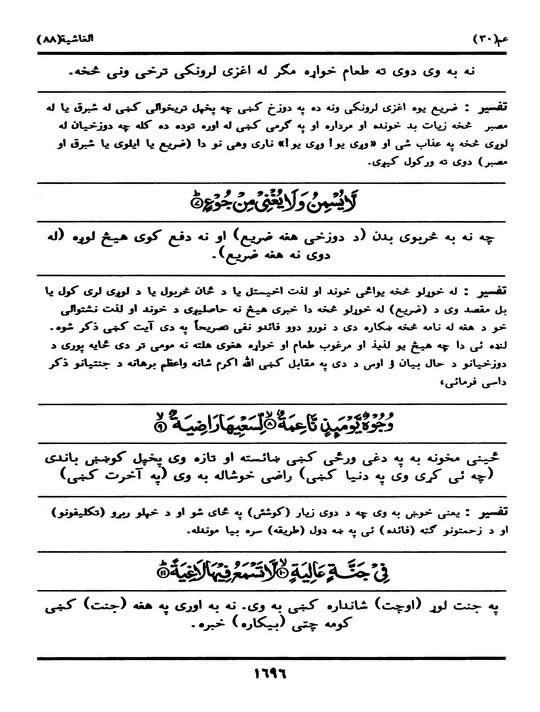 عم(٣٠) الغاشية(٨٨)
نه به وی دوی ته طعام خواړه مګر له اغزی لرونکی ترخی ونی څخه.
تفسیر : ضریع یوه اغزی لرونکی ونه ده په دوزخ کښی چه پخپل تریخوالی کښی له شبرق یا له
مصبر څخه زیات بد خونده او مرداره او په ګرمی کښی له اوره توده ده کله چه دوزخیان له
لوږی څخه په عذاب شی او «وږی یو! وږی یو!» ناری وهی نو دا (ضریع یا ایلوی یا شبرق او
مصبر) دوی ته ورکول کیږی.
لَا يُسْمِنُ وَلَا يُغْنِىْ مِنْ جُوْعٍ ۝٧
چه نه به څربوی بدن (د دوزخی هغه ضریع) او نه دفع کوی هیڅ لوږه (له
دوی نه هغه ضریع).
تفسیر : له خوړلو څخه یوائځی خوند او لذت اخیستل یا د ځان څربول یا د لوږی لری کول یا
بل مقصد وی د (ضریع) له خوړلو څخه دا خبری هیڅ نه حاصلیږی د خوند او لذت نشتوالی
خو د هغه له نامه څخه ښکاره دی د نورو دوو فائدو نفی تصریحاً په دی آیت کښی ذکر شوه.
لنډه ئی دا چه هیڅ یو لذیذ او مرغوب طعام او خواړه هغوی هلته نه مومی تر دی ځایه پوری د
دوزخیانو د حال بیان ؤ اوس د دی په مقابل کښی الله اکرم شانه واعظم برهانه د جنتیانو ذکر
داسی فرمائی،
وُجُوْهٌ يَّوْمَئِذٍ نَّاعِمَةٌ ۝٨ لِّسَعْيِهَا رَاضِيَةٌ ۝٩
ځینی مخونه به په دغی ورځی کښی ښائسته او تازه وی پخپل کوښښ باندی
(چه ئی کړی وی په دنیا کښی) راضی خوشاله به وی (په آخرت کښی)
تفسیر : یعنی خوښ به وی چه د دوی زیار (کوشش) په ځای شو او د خپلو ربړو (تکلیفونو)
او د زحمتونو ګټه (فائده) ئی په ښه ډول (طریقه) سره بیا مونډله.
فِىْ جَنَّةٍ عَالِيَةٍ ۝١٠ لَّا تَسْمَعُ فِيْهَا لَاغِيَةً ۝١١
په جنت لوړ (اوچت) شانداره کښی به وی. نه به اوری په هغه (جنت) کښی
کومه چتی (بیکاره) خبره.
١٦٩٦